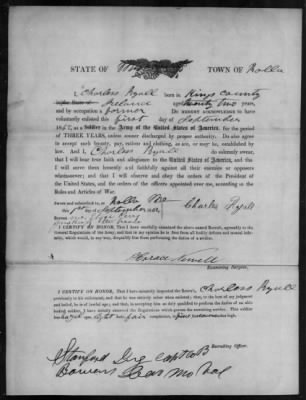 STATE OF TOWN OF Rolla
I, Charles Ryall born in Kings County
Ireland aged twenty two years,
and by occupation a Farmer Do HEREBY ACKNOWLEDGE to have
voluntarily enlisted this first day of September
186 , as a Soldier in the Army of the United States of America, for the period
of THREE YEARS, unless sooner discharged by proper authority: Do also agree
to accept such bounty, pay, rations, and clothing, as are, or may be, established by
law. And I, Charles Ryall do solemnly swear,
that I will bear true faith and allegiance to the United States of America, and that
I will serve them honestly and faithfully against all their enemies or opposers
whomsoever; and that I will observe and obey the orders of the President of
the United States, and the orders of the officers appointed over me, according to the
Rules and Articles of War.
Sworn and subscribed to, at Rolla Mo
this 1st day of September Charles Ryall
Before
I CERTIFY ON HONOR, That I have carefully examined the above named Recruit, agreeably to the
General Regulations of the Army, and that in my opinion he is free from all bodily defects and mental infirmity, which would, in any way, disqualify him from performing the duties of a soldier.
Horace Newell
Examining Surgeon.
I CERTIFY ON HONOR, That I have minutely inspected the Recruit, Charles Ryall
previously to his enlistment, and that he was entirely sober when enlisted; that, to the best of my judgment
and belief, he is of lawful age; and that, in accepting him as duly qualified to perform the duties of an able-bodied soldier, I have strictly observed the Regulations which govern the recruiting service. This soldier
has eyes, light hair, fair complexion, is feet inches high.
Recruiting Officer.